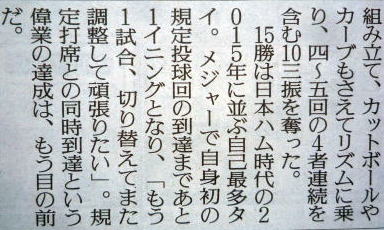 組み立て、カットボールや
カーブもさえてリズムに乗
り、四~五回の4者連続を
含む10三振を奪った。
15勝は日本ハム時代の2
015年に並ぶ自己最多タ
イ。メジャーで自身初の
規定投球回の到達まであと
1イニングとなり、「もう
1試合、切り替えてまた
調整して頑張りたい」。規
定打席との同時到達という
偉業の達成は、もう目の前
だ。